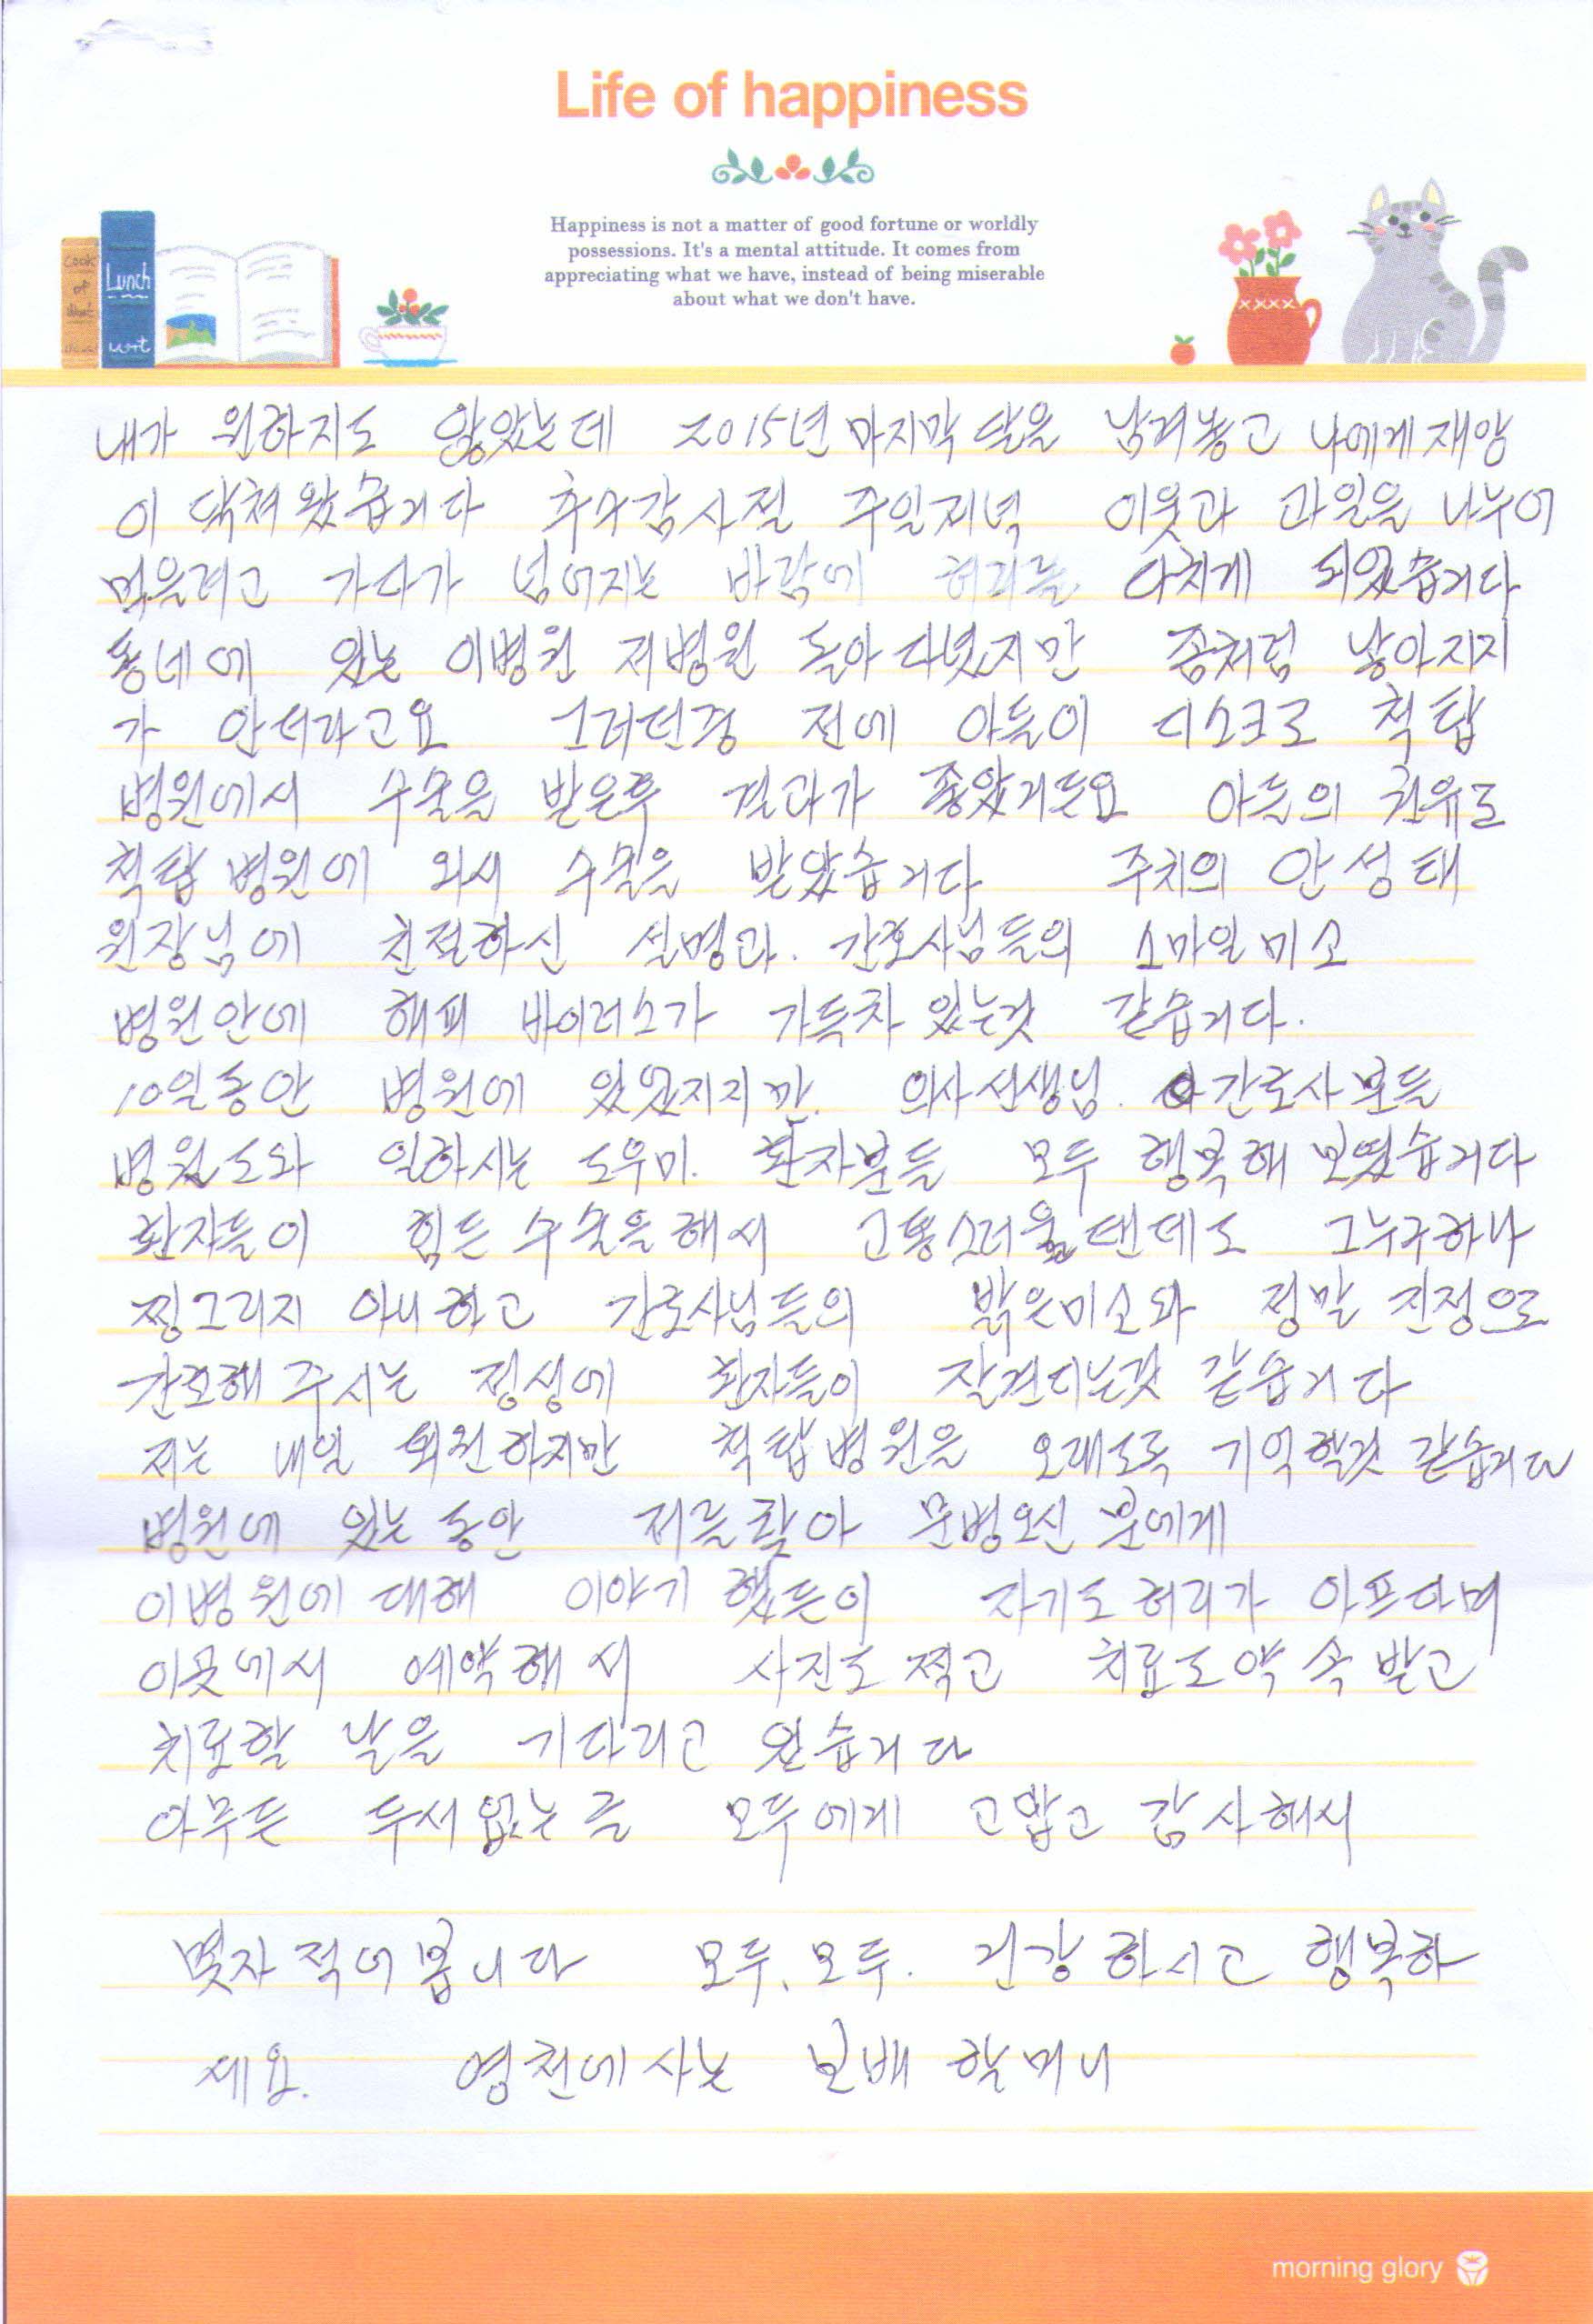 Life of happiness
Happiness is not a matter of good fortune or worldly
possessions. It's a mental attitude. It comes from
appreciating what we have, instead of being miserable
about what we don't have.
Cook
of
Lunch
내가 원하지도 않았는데 2015년 마지막 달을 남겨놓고 나에게 재앙
이 닥쳐 왔습니다 추수감사절 주일저녁 이웃과 과일을 나누어
먹을려고 가다가 넘어지는 바람에 허리를 다치게 되었습니다
동네에 있는 이병원 저병원 돌아 다녔지만 좀처럼 낳아지지
가 안더라고요 그러던중 전에 아들이 디스크로 척탑
병원에서 수술을 받은후 결과가 좋았거든요 아들의 권유로
척탑 병원에 와서 수술을 받았습니다 주치의 안성태
원장님에 친절하신 설명과. 간호사님들의 스마일 미소
병원안에 해피 바이러스가 가득차 있는것 같습니다.
10일동안 병원에 있었지지만. 의사선생님. 간호사분들
병원도와 일하시는 도우미. 환자분들 모두 행복해 보였습니다
환자들이 힘든 수술을 해서 고통스러울텐데도 그누구하나
찡그리지 아니하고 간호사님들의 밝은미소와 정말 진정으로
간호해 주시는 정성에 환자들이 잘견디는것 같습니다
저는 내일 퇴원하지만 척탑병원은 오래도록 기억할것 같습니다
병원에 있는 동안 저를 찾아 문병오신 분에게
이병원에 대해 이야기 했든이 자기도 허리가 아프다며
이곳에서 예약해서 사진도 찍고 치료도 약속 받고
치료할 날을 기다리고 있습니다
아무튼 두서없는 글 모두에게 고맙고 감사해서
몇자 적어봅니다 모두, 모두. 건강하시고 행복하
세요. 영천에 사는 보배 할머니
morning glory